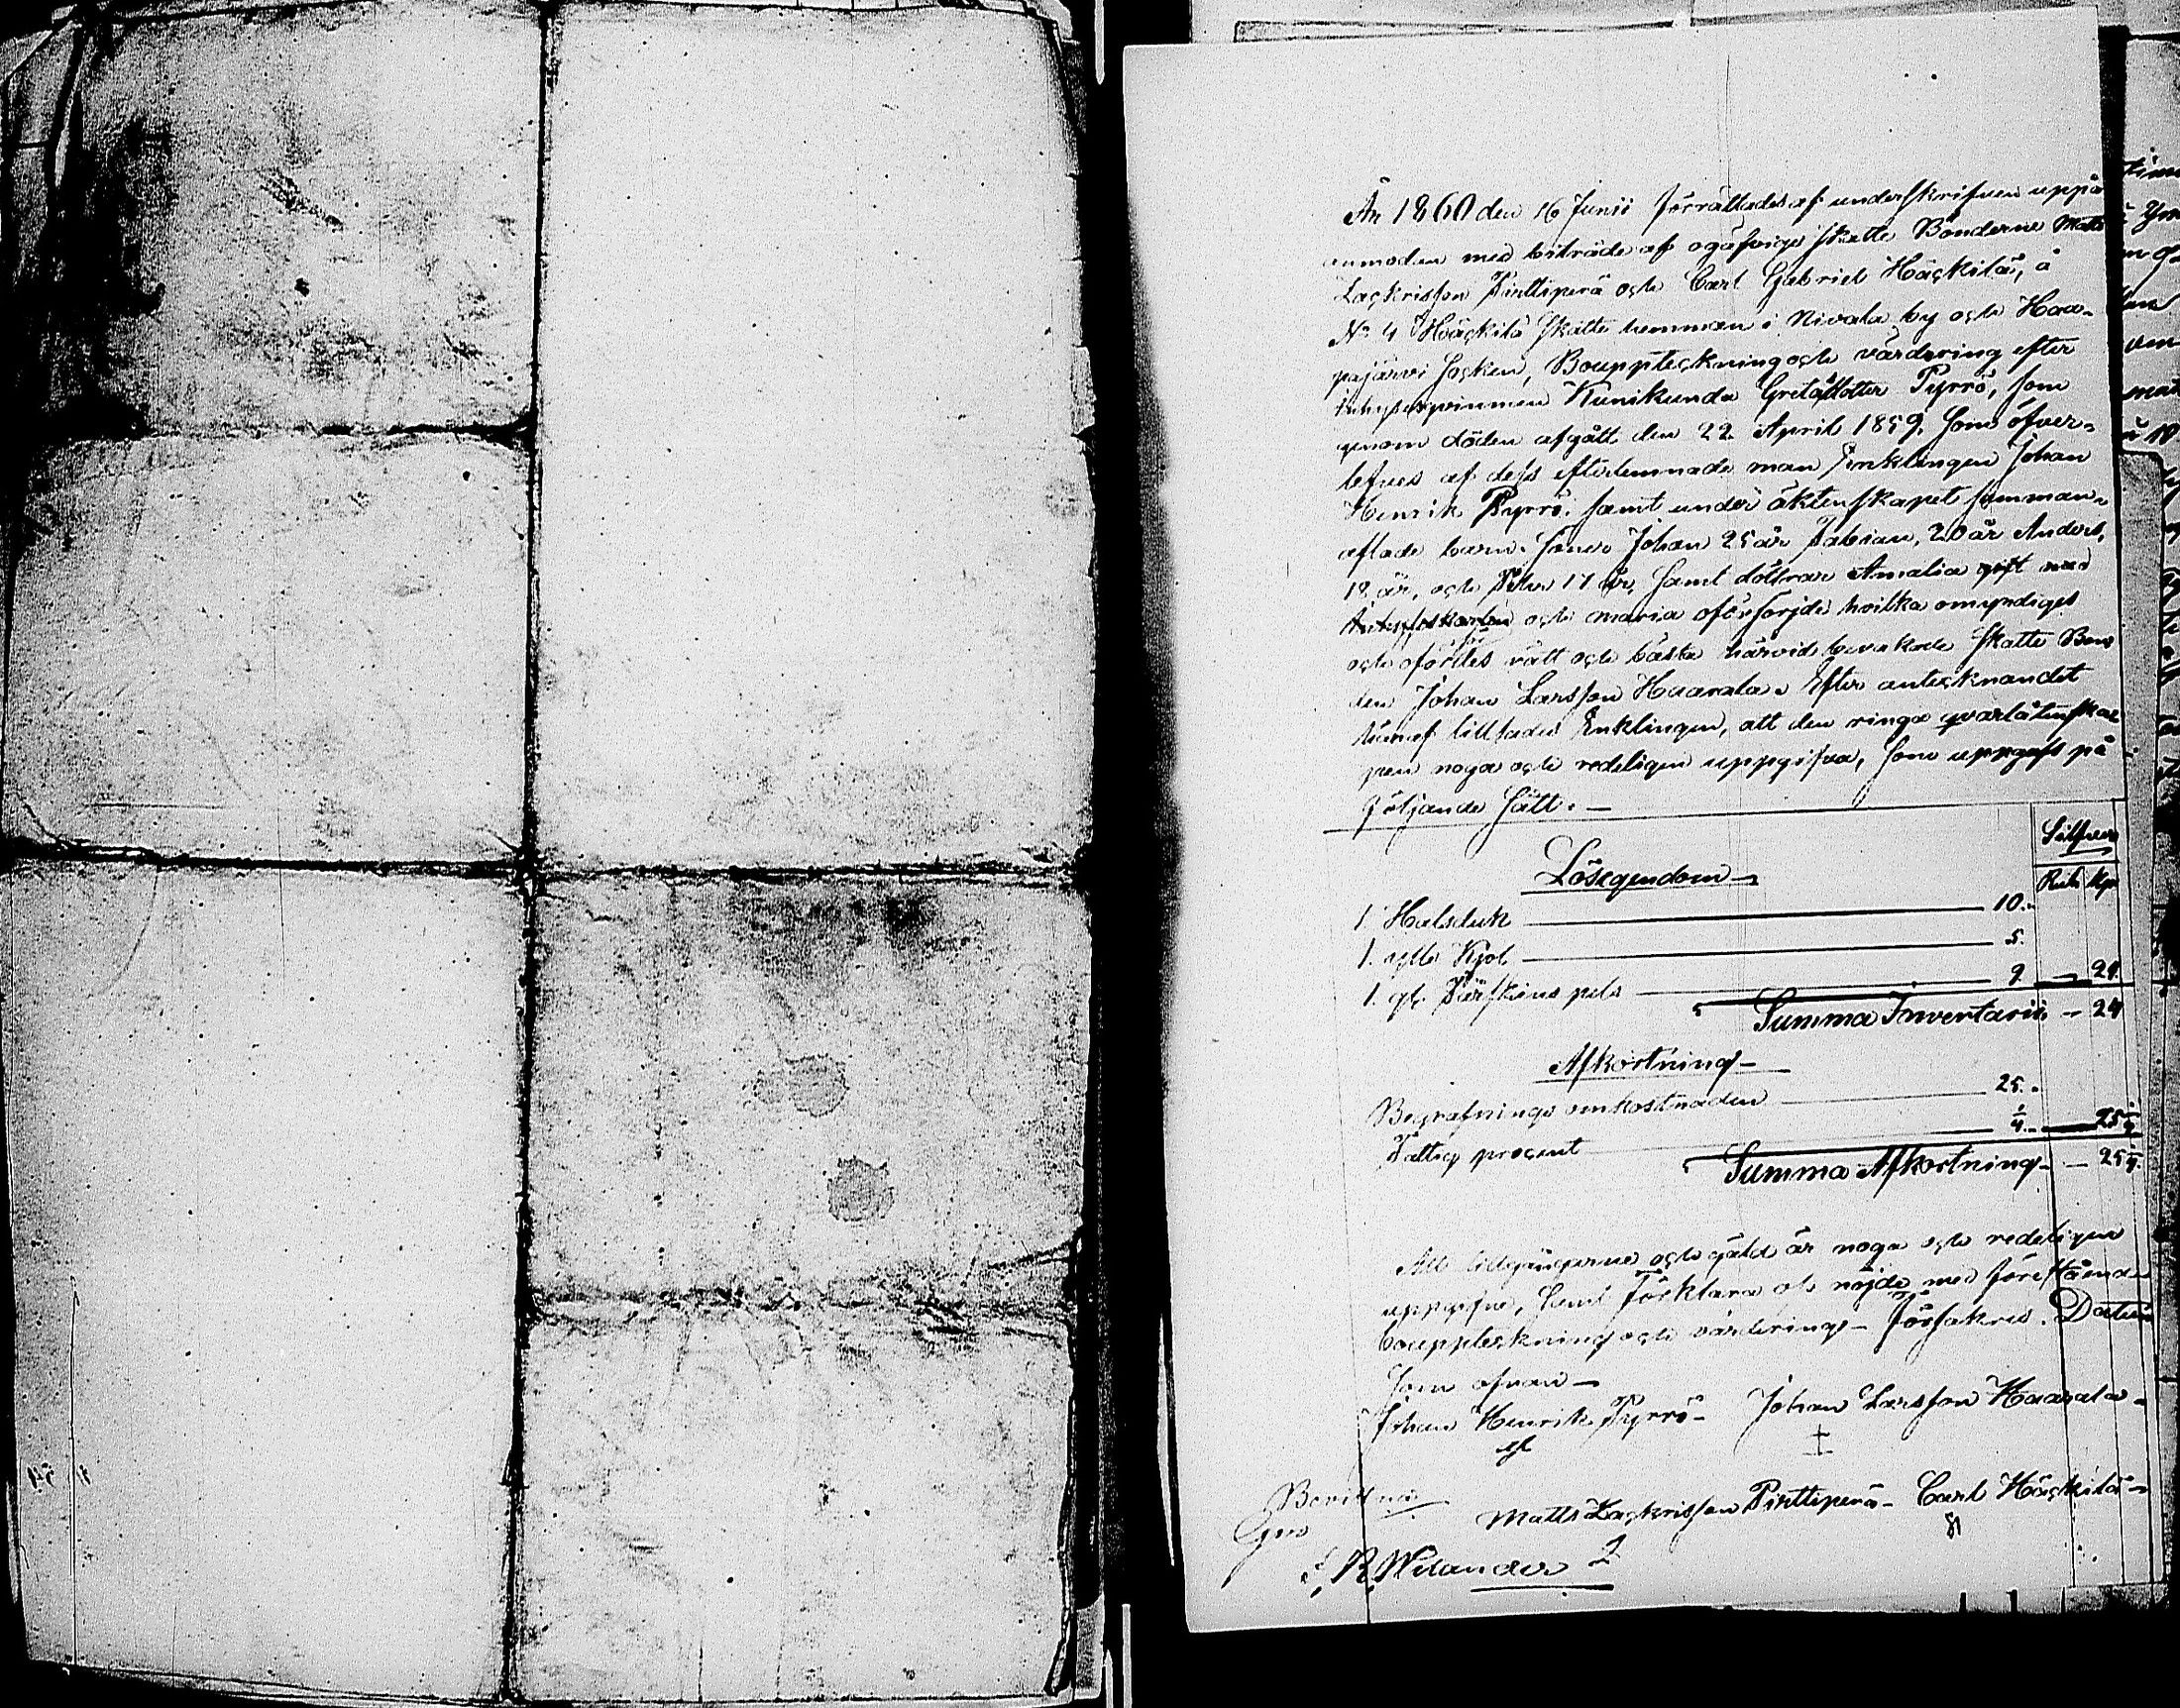 År 1860 den 16 Junii förrättades af underskrifven uppå
anmodan med biträde af ogäfvige skatte Bönderne Matts
Zackrisson Pirttiperä och Carl Gabriel Häckilä, å
No 4 Häckilä skatte hemman i Nivala by och Haa-
pajärvi Socken, Bouppteckning och värdering efter
Inhysesqvinnan Kunikunda Gretasdotter Pyrrö, som
genom döden afgått den 22 April 1859. Som öfver-
lefves af dess efterlemnade man Enklingen Johan
Henrik Pyrrö, samt under äktenskapet samman-
aflade barn. Söner Johan 25 år Fabian, 20 år Anders,
18 år, och Peter 17 år, samt döttrar Amalia gift med
och Maria oförsörjde hvilka omyndiges
och rätt och bästa härvid bevakade skatte Bon
den Johan Larsson Haarala. Efter antecknandet
häraf tilltades Enklingen, att den ringa qvarlåtenska
pen noga och redeligen uppgifva, som uppgafs på
följande sätt. —
Silfver
Lösegendom —
Rub. Kop
1 Halsduk — 10.
1. Kjol — 5.
1. gl. Fårskins pels — 9 — 24.
Summa Inventarii — 24
Afkortning —
Begrafnings omkostnaden — 25.
Fattig procent — 1/4 — 25 1/4
Summa Afkortning — 25 1/4.
Att tillgångarne och gäld är noga och redeligen
uppgifne, samt förklara oss nöjde med förestående
bouppteckning och värdering — försäkras. Datum
som ofvan —
Johan Henrik Pyrrö — Johan Larsson Haarala —
Matts Zackrisson Pirttiperä — Carl Häckilä —
Bevittnar
J. R. Welander